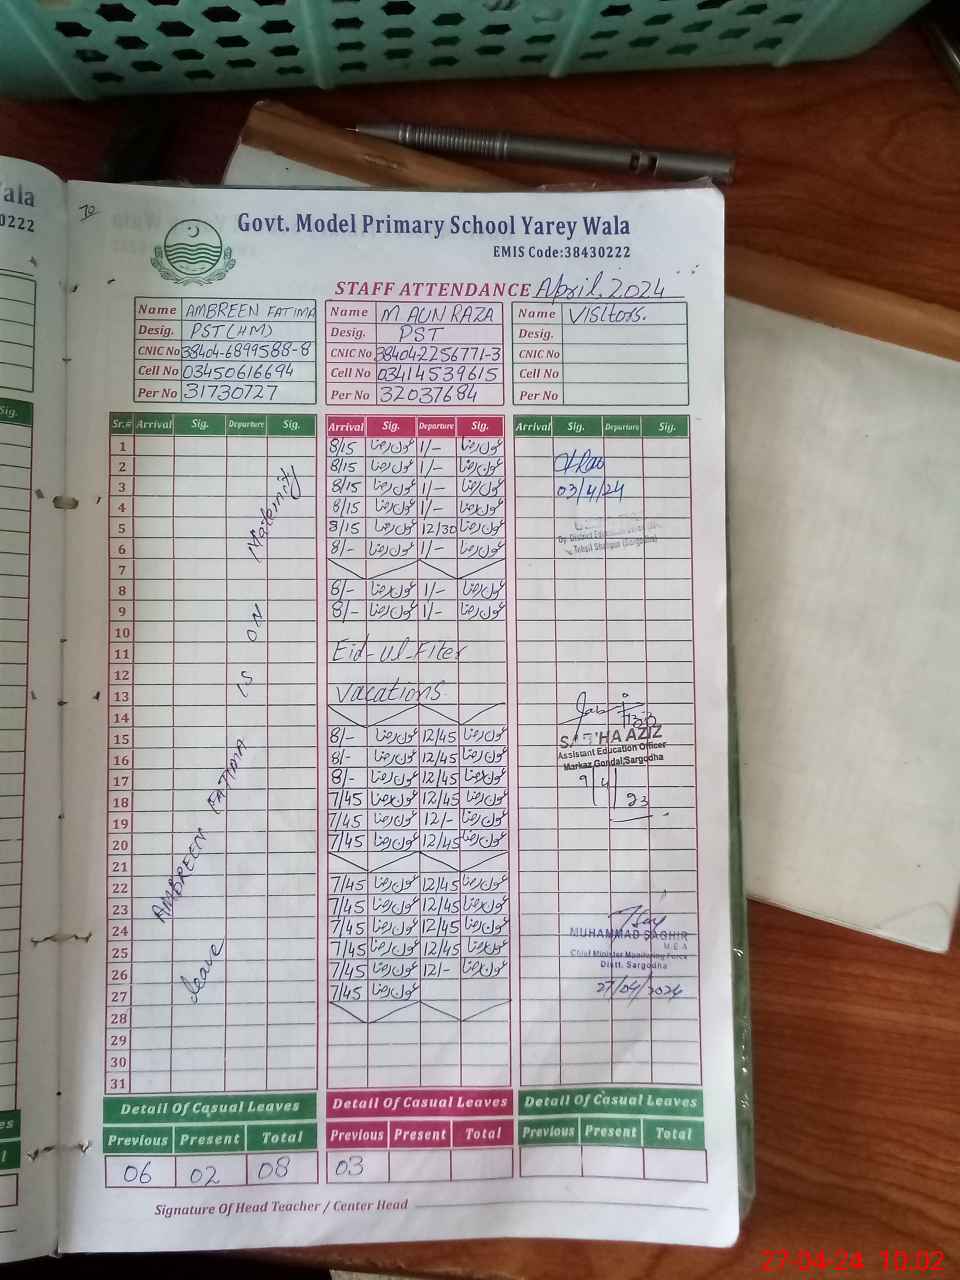 ala
0222
Govt. Model Primary School Yarey Wala
EMIS Code:38430222
STAFF ATTENDANCE April. 2024
Name AMBREEN FATIMA Name M AUN RAZA Name Visitors.
Desig. PST(HM) Desig. PST Desig.
CNIC No 38404-6899588-8 CNIC No 384042256771-3 CNIC No
Cell No 03450616694 Cell No 03414539615 Cell No
Per No 31730727 Per No 32037684 Per No
Sig.
Sr.# Arrival Sig. Departure Sig. Arrival Sig. Departure Sig. Arrival Sig. Departure Sig.
1 8/15 عون رضا 1/- عون رضا
2 8/15 عون رضا 1/- عون رضا
3 8/15 عون رضا 1/- عون رضا 03/4/24
4 8/15 عون رضا 1/- عون رضا
5 8/15 عون رضا 12/30 عون رضا
6 8/- عون رضا 1/- عون رضا
7
8 8/- عون رضا 1/- عون رضا
9 8/- عون رضا 1/- عون رضا
10
11 Eid-ul-Fiter
12
13 Vacations
14
15 8/- عون رضا 12/45 عون رضا
16 8/- عون رضا 12/45 عون رضا
17 8/- عون رضا 12/45 عون رضا
18 7/45 عون رضا 12/45 عون رضا
19 7/45 عون رضا 12/- عون رضا
20 7/45 عون رضا 12/45 عون رضا
21
22 7/45 عون رضا 12/45 عون رضا
23 7/45 عون رضا 12/45 عون رضا
24 7/45 عون رضا 12/45 عون رضا
25 7/45 عون رضا 12/45 عون رضا
26 7/45 عون رضا 12/- عون رضا
27 7/45 عون رضا
28
29
30
31
AMBREEN FATIMA IS ON Maternity
leave
AZIZ
Assistant Education Officer
Markaz Gondal, Sargodha
MUHAMMAD SAGHIR
M.E.A
Chief Minister Monitoring Force
Distt. Sargodha
27/04/2024
Detail Of Casual Leaves Detail Of Casual Leaves Detail Of Casual Leaves
Previous Present Total Previous Present Total Previous Present Total
06 02 08 03
Signature Of Head Teacher / Center Head
27-04-24 10:02